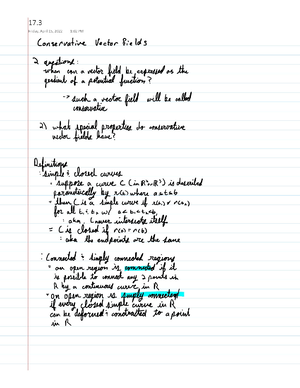 17.3
Friday, April 15, 2022
Conservative Vector Fields
2 questions:
when can a vector field be expressed as the
gradient of a potential function?
-> such a vector field will be called
conservative
2) what special properties do conservative
vector fields have?
Definitions
simple & closed curves
suppose a curve C (in R² or R³) is described
parametrically by r(t) where a≤t≤b
then C is a simple curve if r(t₁) ≠ r(t₂)
for all t₁, t₂ w/ a<t₁<t₂<b
aka, C never intersects itself
C is closed if r(a) = r(b)
aka the endpoints are the same
Connected & simply connected regions
an open region is connected if it
is possible to connect any 2 points in
R by a continuous curve in R
an open region is simply connected
if every closed simple curve in R
can be deformed & contracted to a point
in R